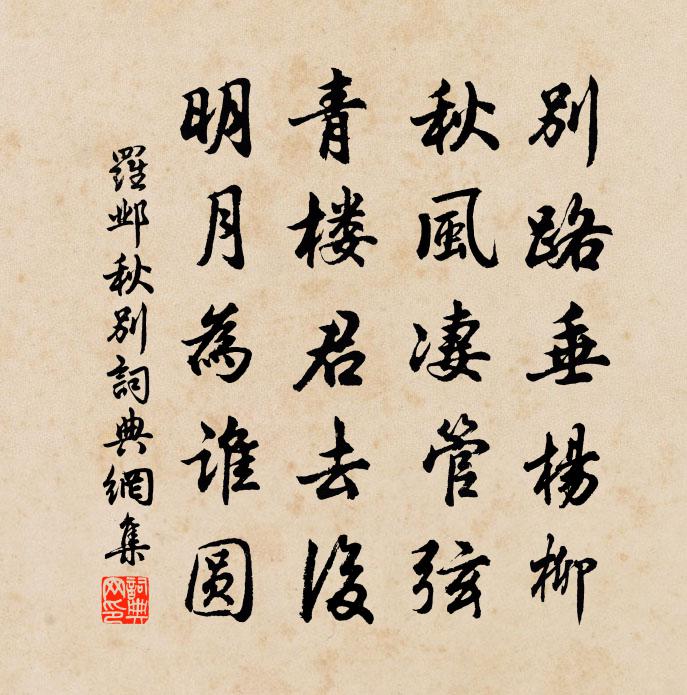 別路垂楊柳
秋風凄管弦
青楼君去後
明月為誰圆
羅邺秋别詞典網集
詞典网印